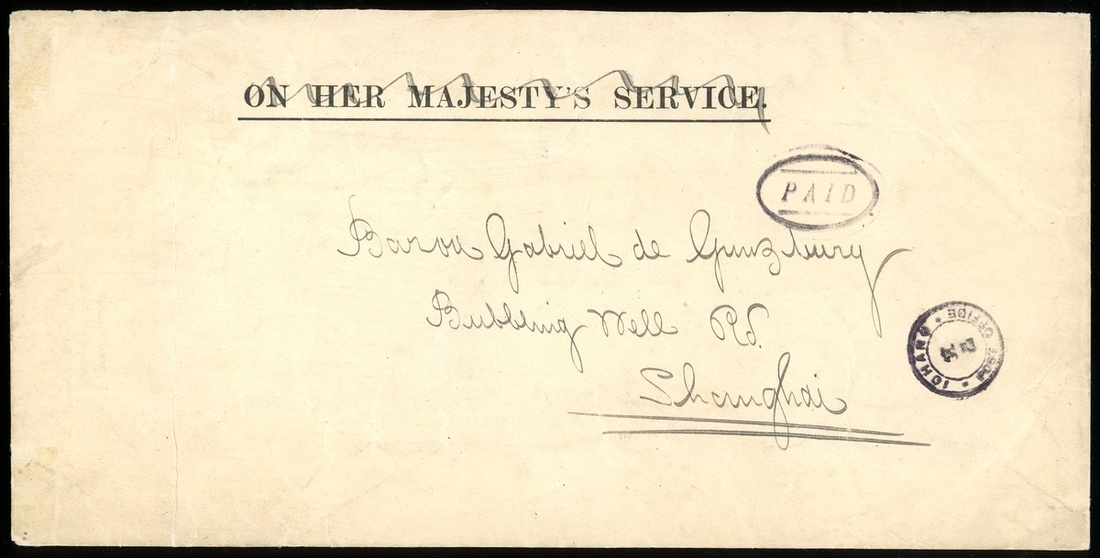 ON HER MAJESTY'S SERVICE.
PAID
Baron Gabriel de Gunzburg
Bubbling Well Rd.
Shanghai
ICHANG • POST OFFICE •